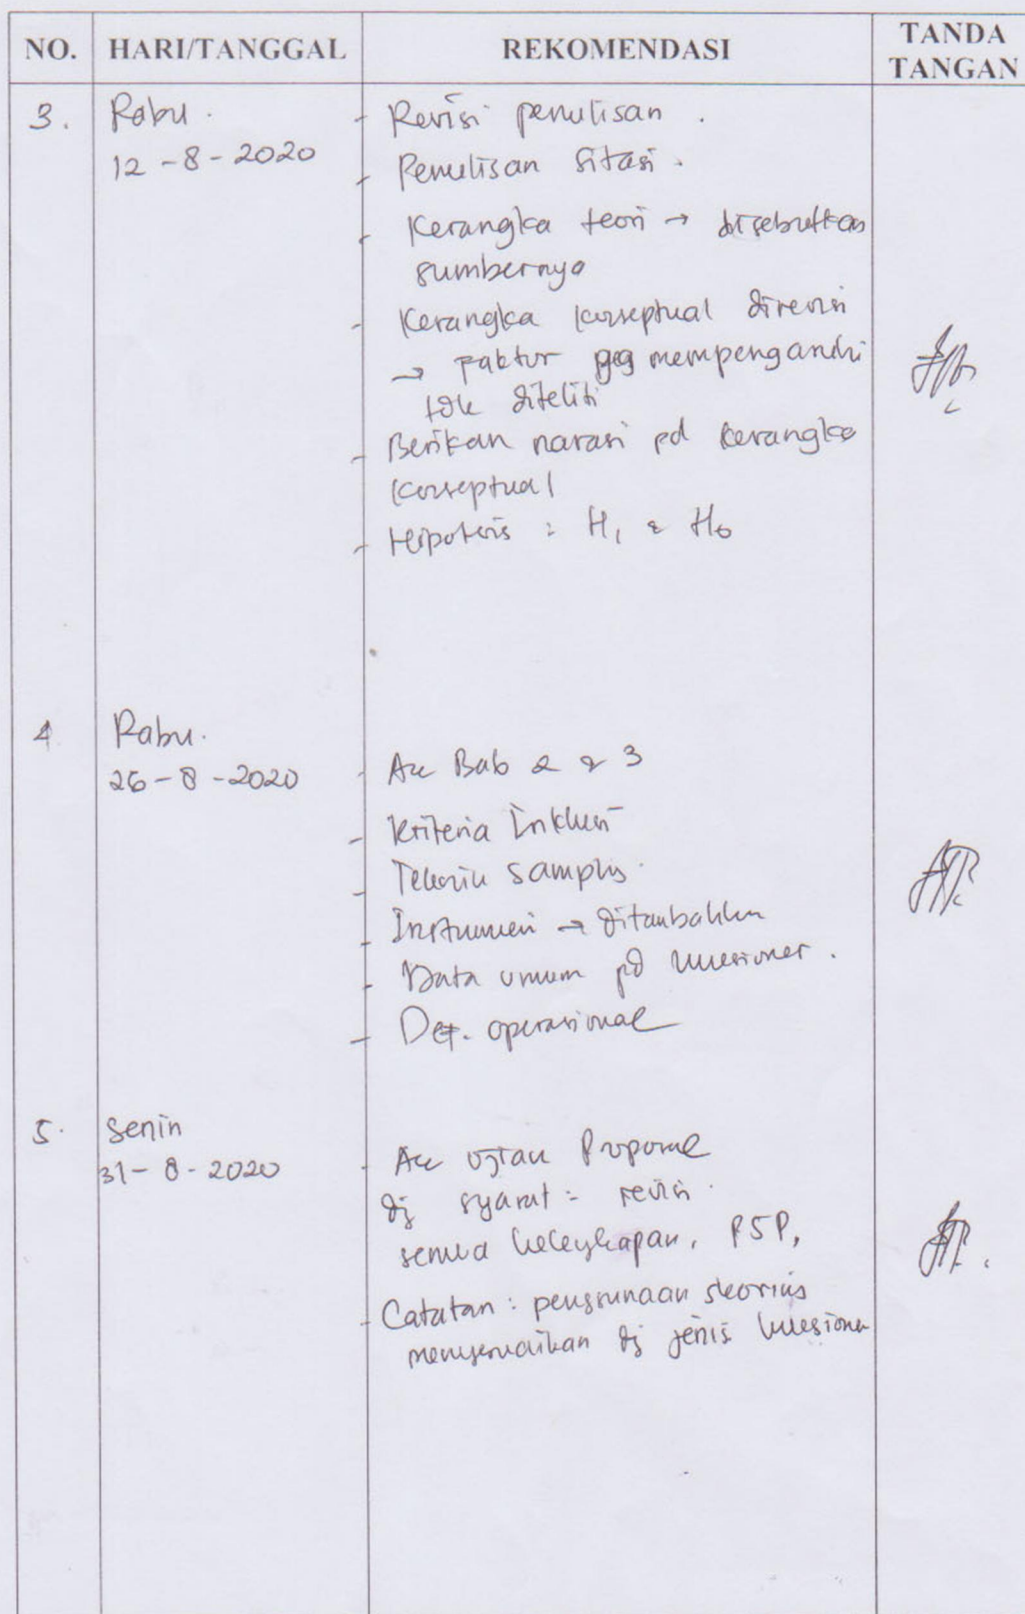 NO. HARI/TANGGAL REKOMENDASI TANDA TANGAN
3. Rabu. - Revisi penulisan.
12-8-2020 - Penulisan Sitasi.
- Kerangka teori → disebutkan
sumbernya
- Kerangka konseptual direvisi
→ Faktor yg mempengaruhi
tdk diteliti
- Berikan narasi pd kerangka
konseptual
- Hipotesis : H1 & H0
4. Rabu.
26-8-2020 - Acc Bab 2 & 3
- Kriteria Inklusi
- Teknik sampling.
- Instrumen → ditambahkan
- Data umum pd kuesioner.
- Def. operasional
5. Senin
31-8-2020 - Acc ujian Proposal
dg syarat : revisi.
semua kelengkapan, PSP,
- Catatan : penggunaan skoring
menyesuaikan dg jenis kuesioner